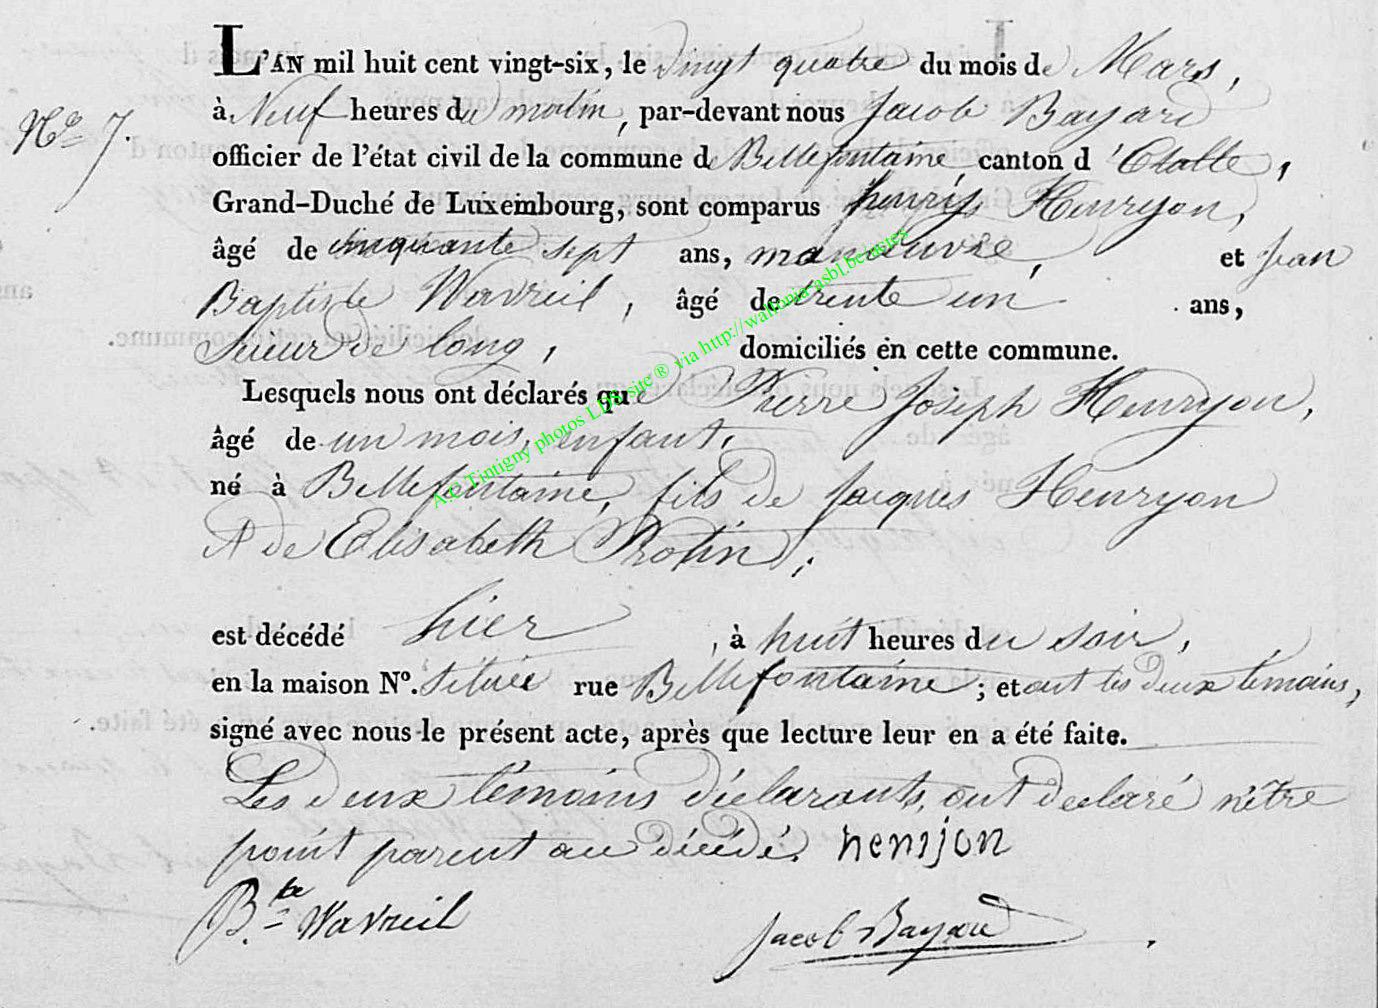 L'AN mil huit cent vingt-six, le vingt quatre du mois de Mars,
No 7.
à Neuf heures du matin, par-devant nous Jacob Bayard
officier de l'état civil de la commune de Bellefontaine, canton d'Etalle,
Grand-Duché de Luxembourg, sont comparus henry Henryon,
âgé de cinquante sept ans, manoeuvre, et Jean
Baptiste Wavreil, âgé de trente un ans,
sieur de long, domiciliés en cette commune.
Lesquels nous ont déclarés que Pierre Joseph Henryon,
âgé de un mois, enfant,
né à Bellefontaine, fils de Jacques Henryon
Et de Elisabeth Protin,
est décédé hier, à huit heures du soir,
en la maison No. située rue Bellefontaine; et ont les deux témoins,
signé avec nous le présent acte, après que lecture leur en a été faite.
Les deux témoins déclarants, ont déclaré n'être
point parent au décédé. henrjon
Bte Wavreil
Jacob Bayard
A.C Tintigny photos LDB site ® via http://wallonia-asbl.be/actes